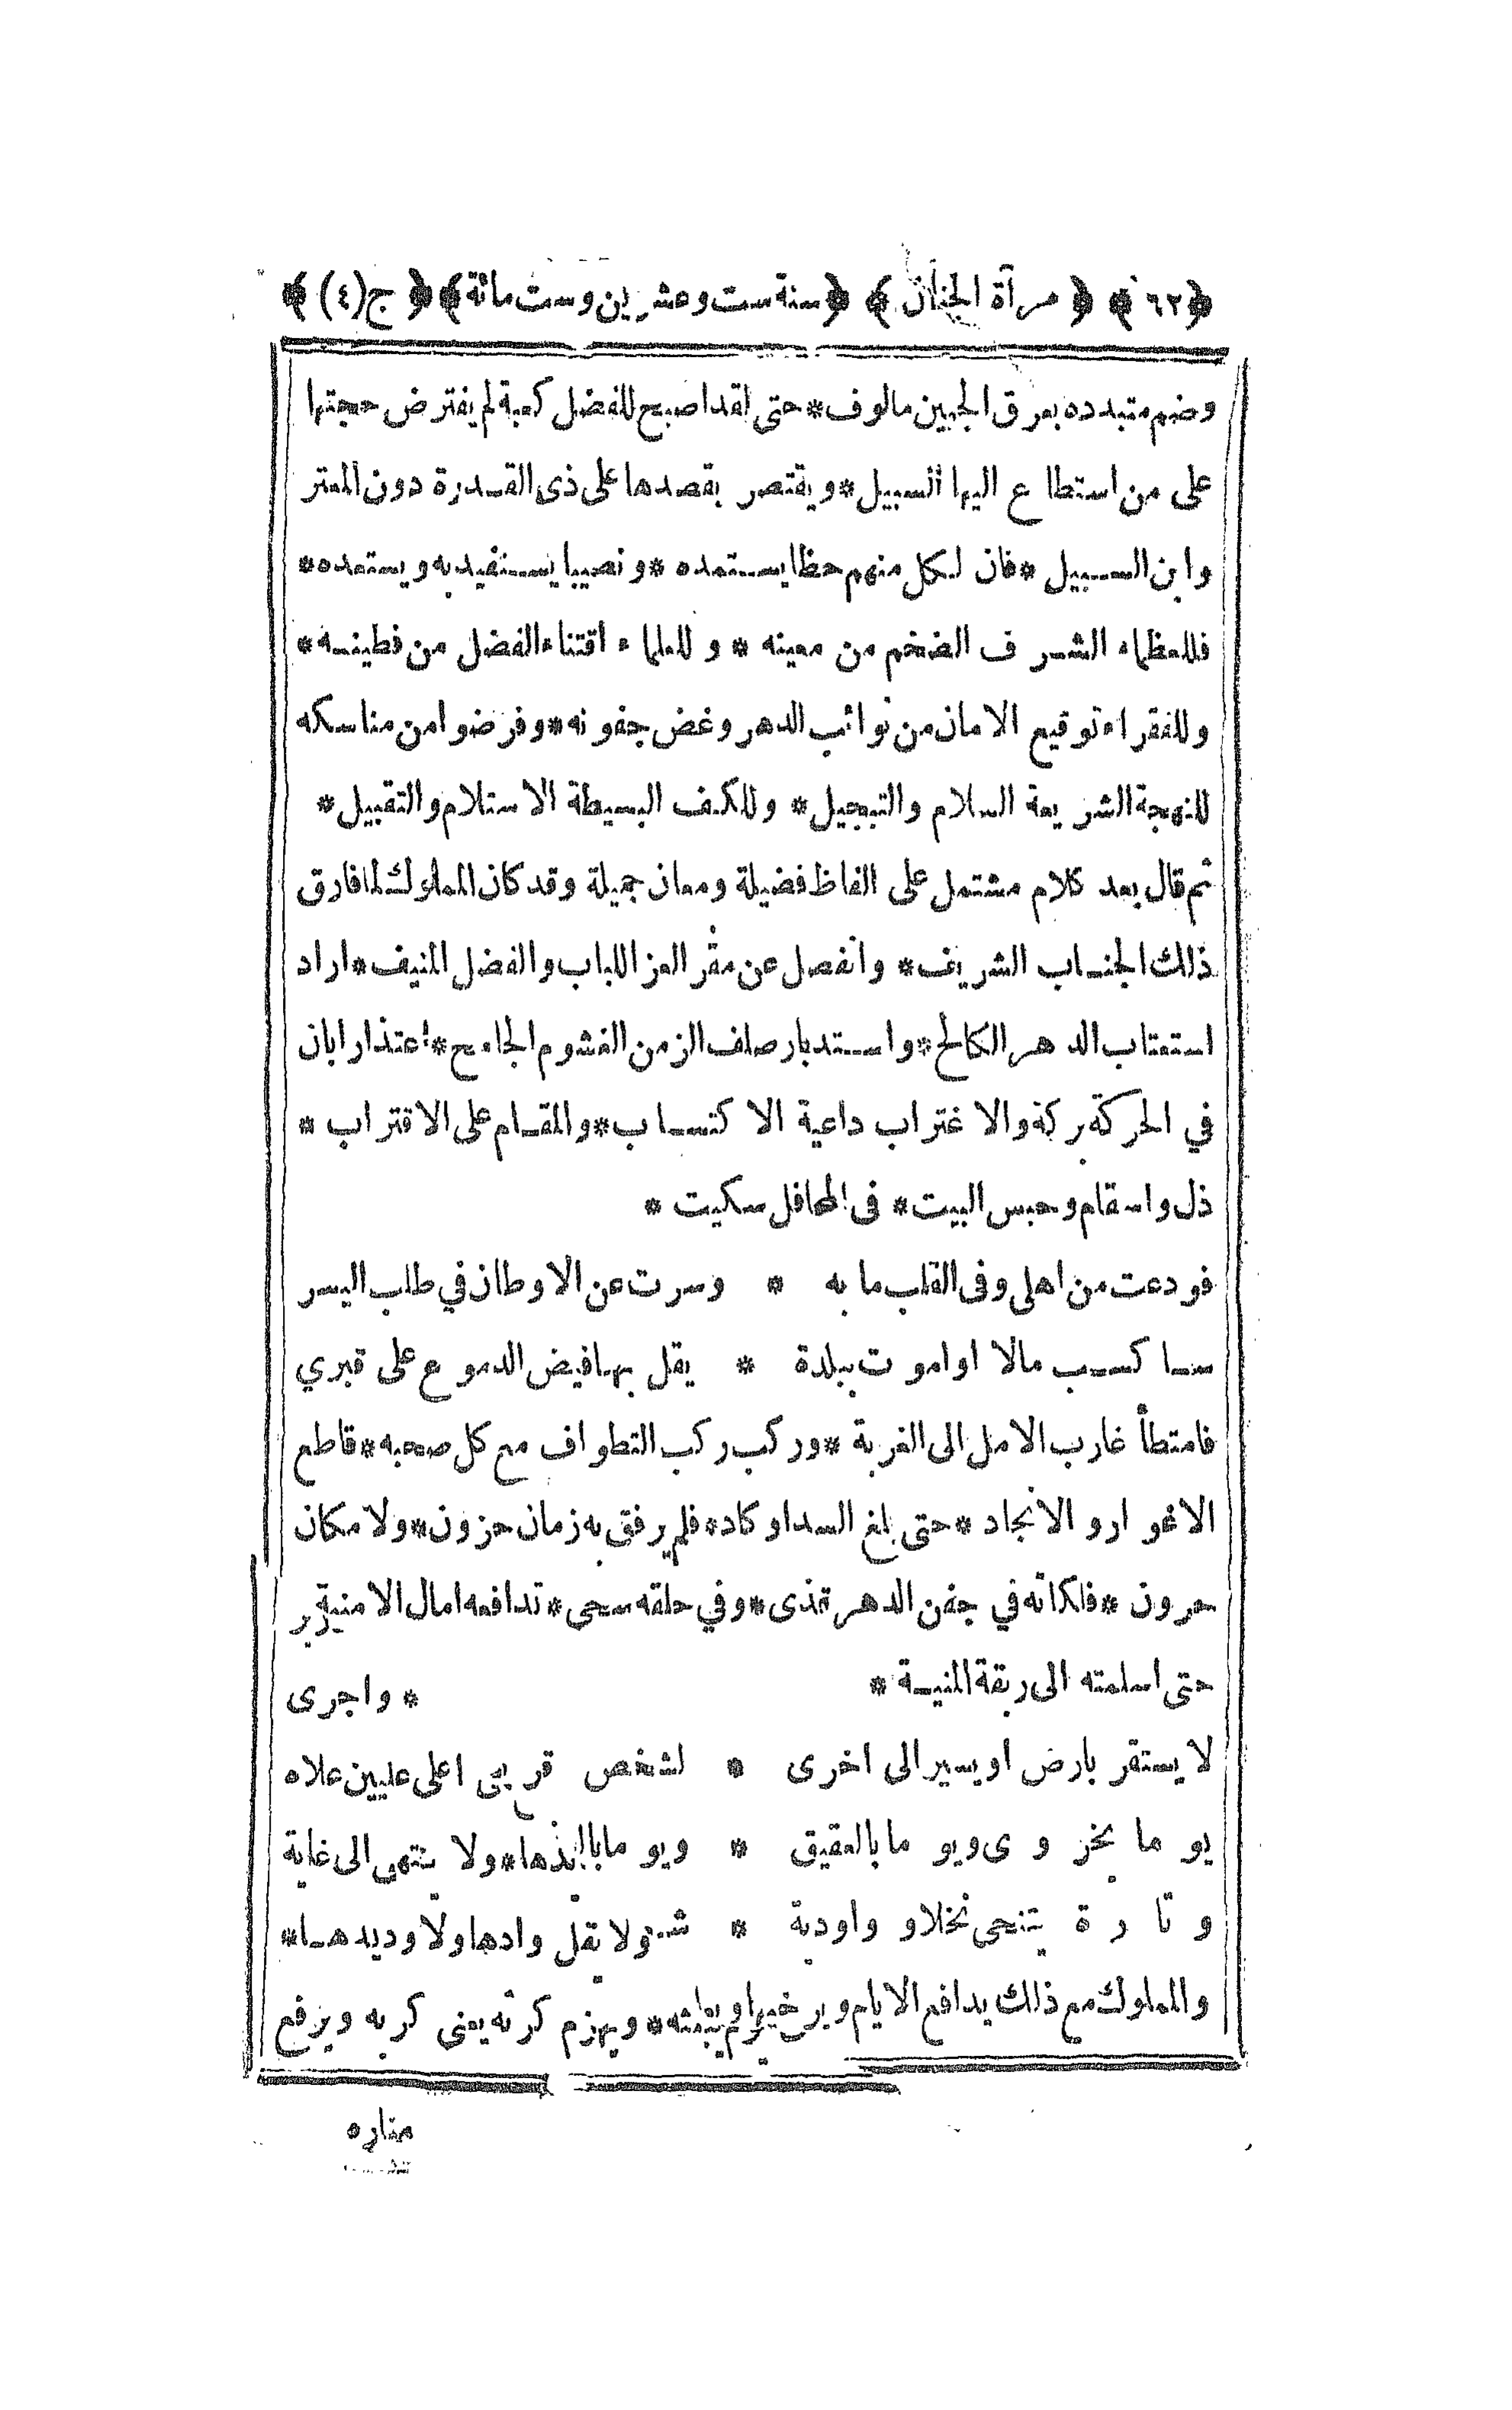 ﴿٦٢﴾ ﴿ مرآة الجنان ﴾ ﴿سنة ست وعشرين وست مائة﴾ ﴿ ج(٤) ﴾
وضم متبدده بعرق الجبين مالوف * حتى لقد اصبح للفضل كعبة لم يفترض حجتها
على من استطاع اليها السبيل * ويقتصر بقصدها على ذى القدرة دون المعتر
وابن السبيل * فان لكل منهم حظا يستمده * ونصيبا يستفيد به ويستعده *
فللعظماء الشرف الضخم من معينه * وللعلماء اقتناء الفضل من فطينه *
وللفقراء توقيع الامان من نوائب الدهر وغض جفونه * وفرضوا من مناسكه
للنهجة الشريعة السلام والتبجيل * وللكف البسيطة الاستلام والتقبيل *
ثم قال بعد كلام مشتمل على الفاظ فضيلة ومعان جميلة وقد كان المملوك لما فارق
ذلك الجناب الشريف * وانفصل عن مقر العز اللباب والفضل المنيف * اراد
استعتاب الدهر الكالح * واستدبار صلف الزمن الغشوم الجامح * اعتذارا بان
في الحركة بركة والاغتراب داعية الاكتساب * والمقام على الاقتراب *
ذل واسقام وحبس البيت * فى المحافل سكيت *
فودعت من اهلى وفى القلب ما به * وسرت عن الاوطان في طلب اليسر
ساكسب مالا او اموت ببلدة * يقل بها فيض الدموع على قبري
فامتطأ غارب الامل الى الغربة * وركب ركب التطواف مع كل صحبه * قاطع
الاغوار والانجاد * حتى بلغ السد او كاد * فلم يرفق به زمان حزون * ولا مكان
حرون * فلكانه في جفن الدهر قذى * وفي حلقه سحى * تدافعه امال الامنية
حتى اسلمته الى ربقة المنية * * واجرى
لا يستقر بارض او يسير الى اخرى * لشخص قر بجى اعلى عليين علاه
يوما بخزوى ويوما بالعقيق * ويوما ولا ينتهى الى غاية
وتارة ينتحى نخلا واودية * ولا يقل وادها ولا وديدها *
والمملوك مع ذلك يدافع الايام * ويهزم كرته يعنى كربه ويرفع
مناره